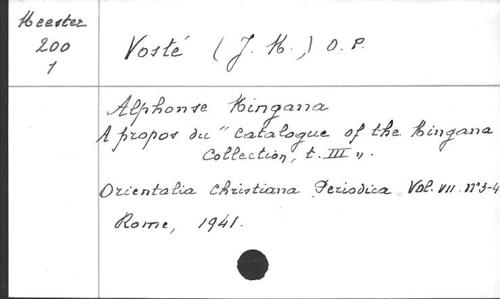 Meester
200
1
Vosté (J. M.,) O. P.
Alphonse Mingana
A propos du "Catalogue of the Mingana
Collection, t. III".
Orientalia Christiana Periodica Vol. VII. n°3-4
Rome, 1941.